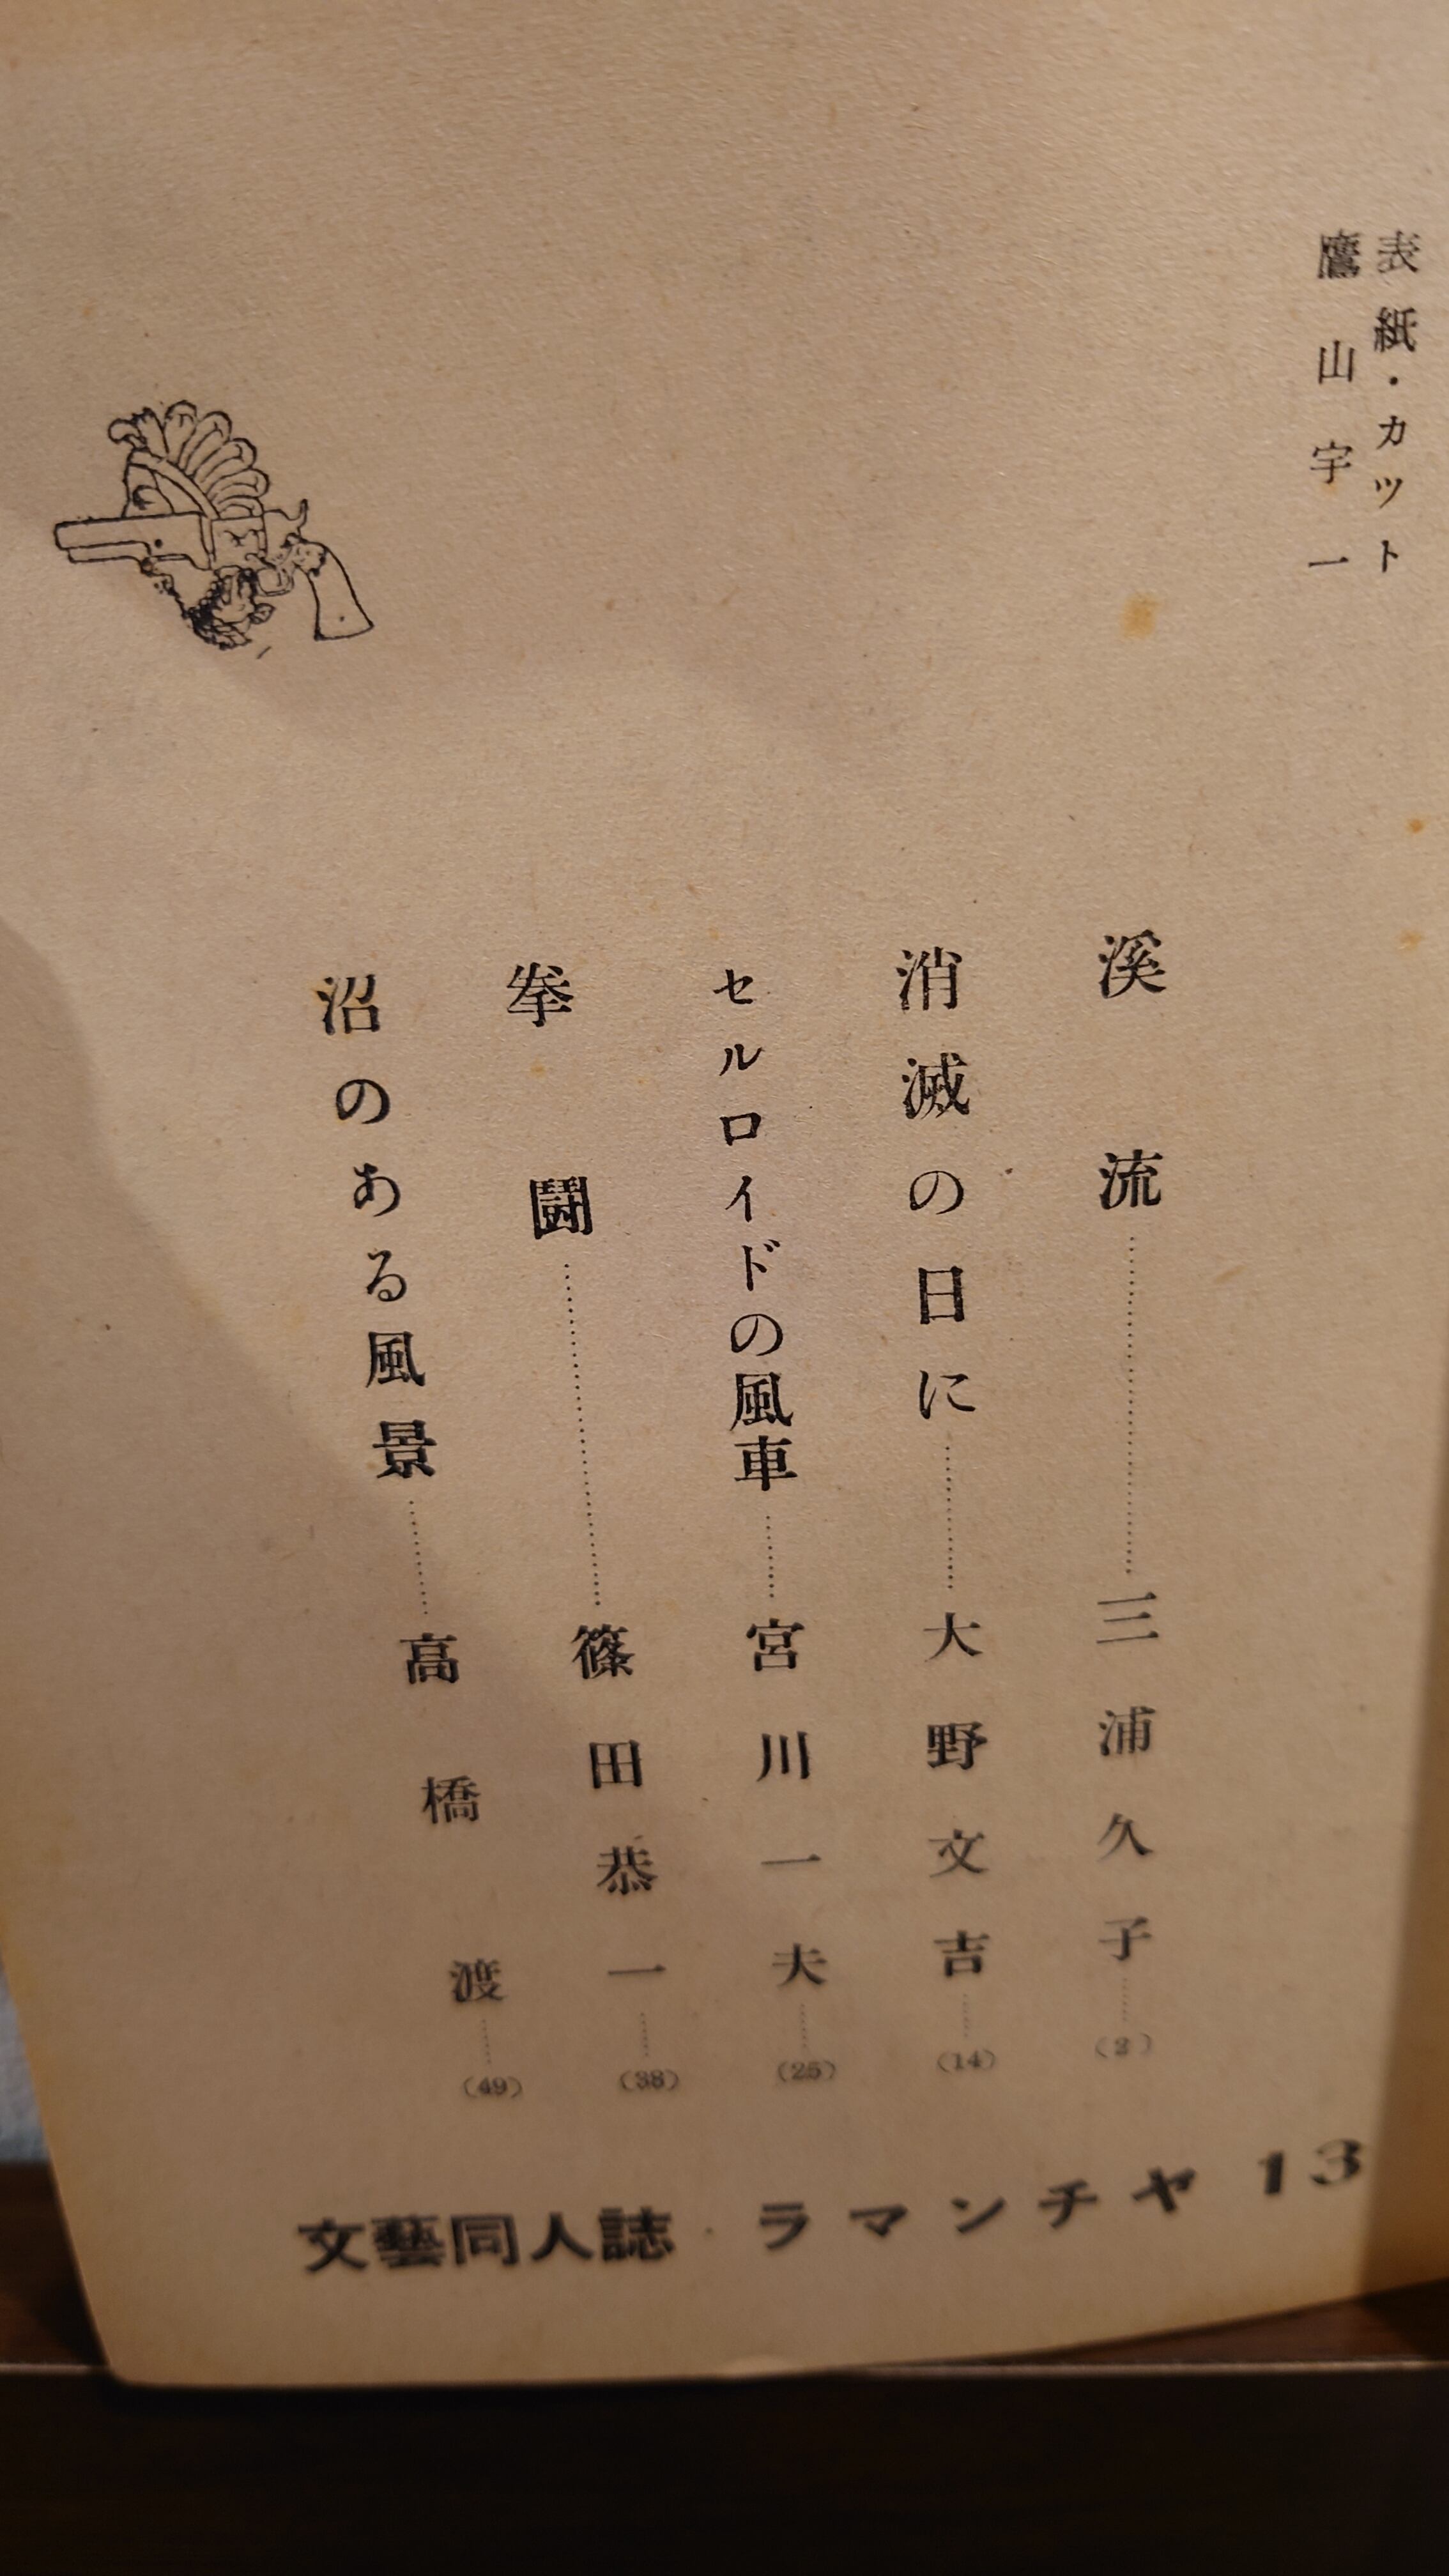 表紙・カツト
鷹山宇一
溪流…………三浦久子……(2)
消滅の日に……大野文吉……(14)
セルロイドの風車……宮川一夫……(25)
拳鬪…………篠田恭一……(38)
沼のある風景……高橋渡……(49)
文藝同人誌・ラマンチヤ 13